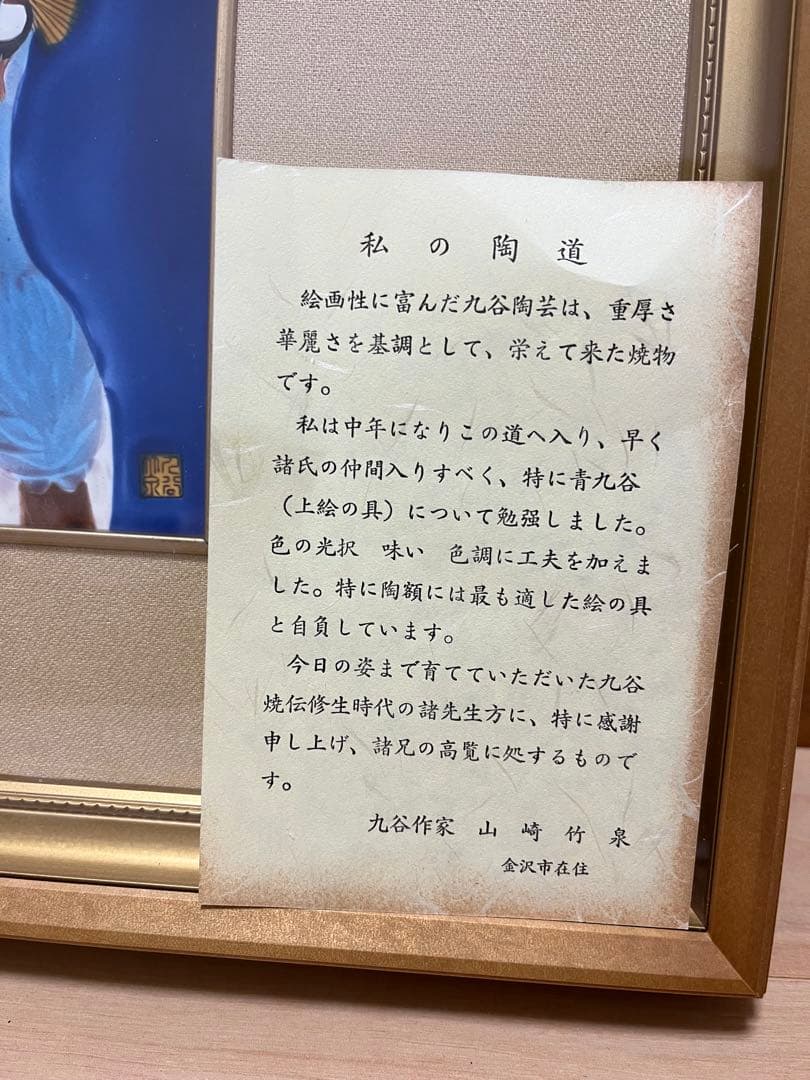 私の陶道
絵画性に富んだ九谷陶芸は、重厚さ
華麗さを基調として、栄えて来た焼物
です。
私は中年になりこの道へ入り、早く
諸氏の仲間入りすべく、特に青九谷
（上絵の具）について勉強しました。
色の光択　味い　色調に工夫を加えま
した。特に陶額には最も適した絵の具
と自負しています。
今日の姿まで育てていただいた九谷
焼伝修生時代の諸先生方に、特に感謝
申し上げ、諸兄の高覧に処するもので
す。
九谷作家　山崎竹泉
金沢市在住